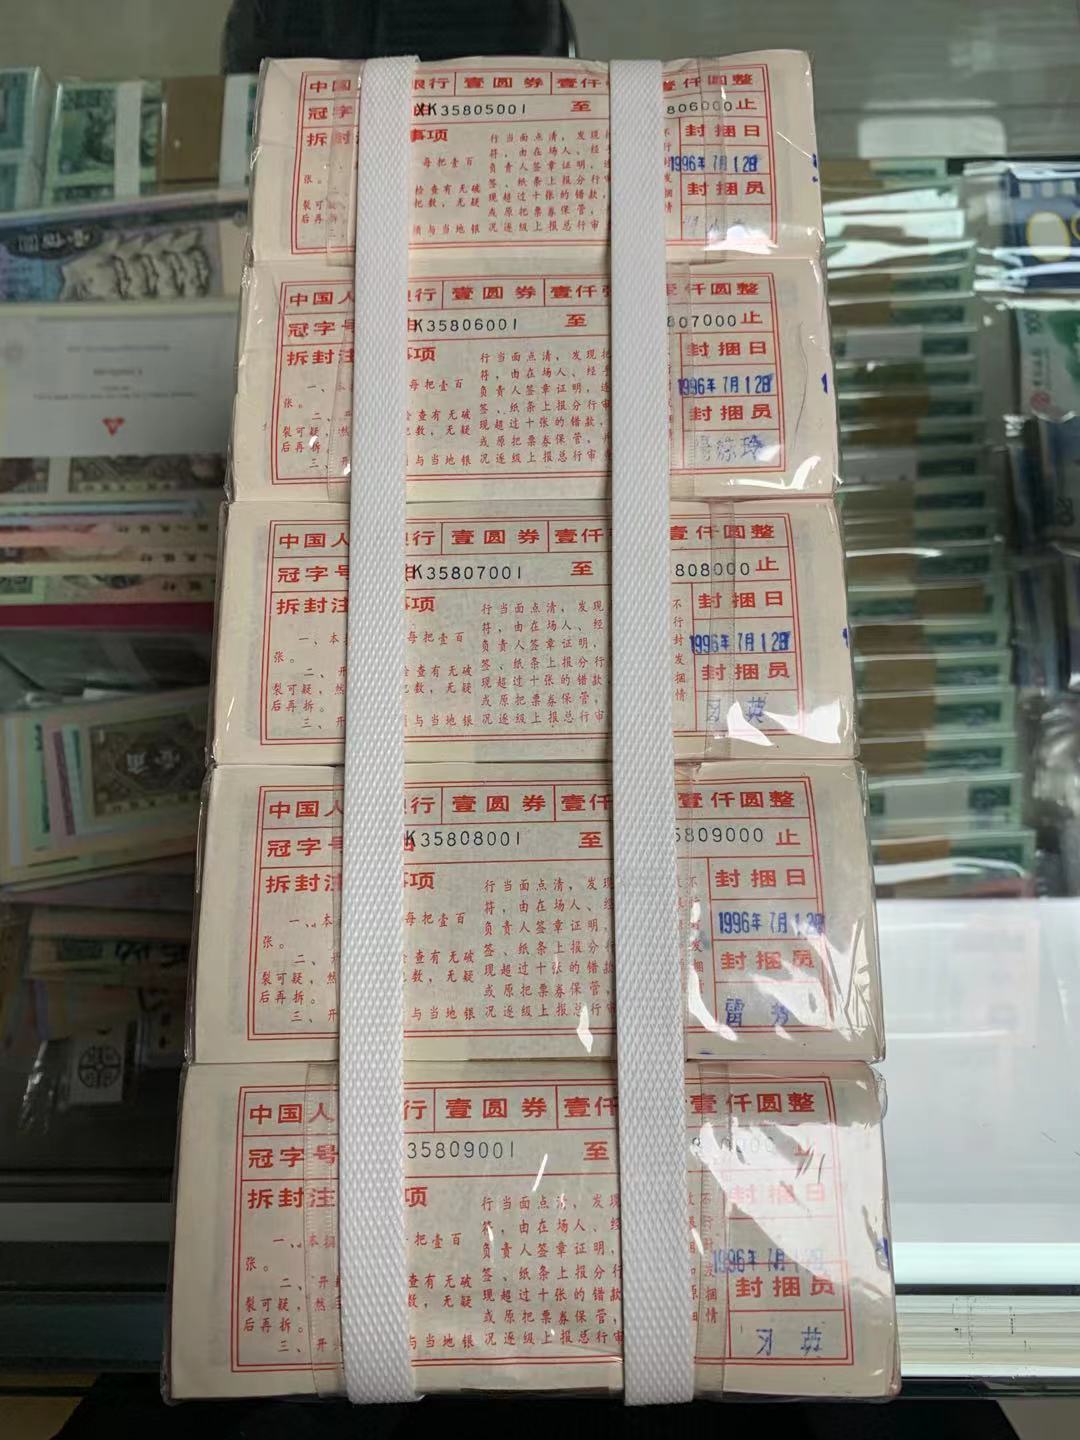 中国 银行 壹圆券 壹仟 圆整
冠字 XK35805001 至 806000止
拆封 事项
每把壹百
张。
检查有无破
裂可 把数，无疑
后再 须与当地银
行当面点清，发现
符，由在场人、经
负责人签章证明，
签、纸条上报分行
现超过十张的错款
或原把票券保管，
况逐级上报总行审
封捆日
1996年7月12日
封捆员
中国人 银行 壹圆券 壹仟 壹仟圆整
冠字号 K35806001 至 807000止
拆封注 事项
一、本 每把壹百
张。
二、开 检查有无破
裂可疑，然 把数，无疑
后再拆。
三、开 须与当地银
行当面点清，发现
符，由在场人、经
负责人签章证明，
签、纸条上报分行
现超过十张的错款，
或原把票券保管，
况逐级上报总行审
封捆日
1996年7月12日
封捆员
中国人 银行 壹圆券 壹仟 壹仟圆整
冠字号 K35807001 至 808000止
拆封注 事项
一、本 每把壹百
张。
二、开 检查有无破
裂可疑，然 把数，无疑
后再拆。
三、开 须与当地银
行当面点清，发现
符，由在场人、经
负责人签章证明，
签、纸条上报分行
现超过十张的错款
或原把票券保管，
况逐级上报总行审
不
行
封
发
捆
情
封捆日
1996年7月12日
封捆员
中国人 行 壹圆券 壹仟 壹仟圆整
冠字号 K35808001 至 5809000止
拆封注 事项
一、本 每把壹百
张。
二、开 查有无破
裂可疑，然 把数，无疑
后再拆。
三、开 与当地银
行当面点清，发现
符，由在场人、经
负责人签章证明，
签、纸条上报分行
现超过十张的错款
或原把票券保管，
况逐级上报总行审
封捆日
1996年7月12日
封捆员
中国人 行 壹圆券 壹仟 壹仟圆整
冠字号 35809001 至 止
拆封注 项
一、本捆 把壹百
张。
二、开 查有无破
裂可疑，然 数，无疑
后再拆。
三、开 与当地银
行当面点清，发
符，由在场人、经
负责人签章证明，
签、纸条上报分行
现超过十张的错款
或原把票券保管，
况逐级上报总行审
不
行
封
发
捆
情
封捆日
1996年7月12日
封捆员